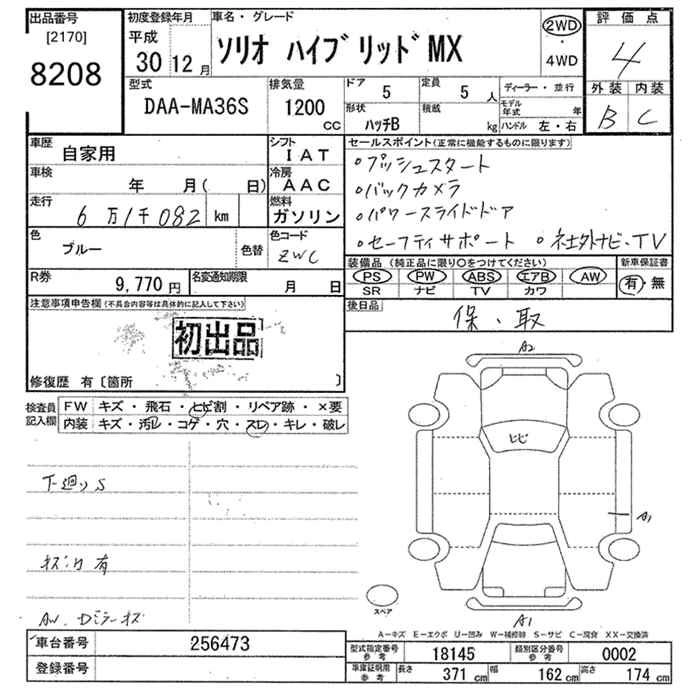 出品番号
[2170]
8208
初度登録年月
平成
30年12月
車名・グレード
ソリオ ハイブリッドMX
2WD
・
4WD
評価点
4
外装 内装
B C
型式
DAA-MA36S
排気量
1200
CC
ドア
5
定員
5人
形状
ハッチB
積載
kg
ディーラー・並行
モデル年式 年
ハンドル 左・右
車歴
自家用
シフト
IAT
車検
年 月( 日)
冷房
AAC
走行
6万1千082 km
燃料
ガソリン
色
ブルー
色替
色コード
ZWC
R券
9,770円
名変通知期限
月 日
セールスポイント(正常に機能するものに限ります)
○プッシュスタート
○バックカメラ
○パワースライドドア
○セーフティサポート ○社外ナビ・TV
装備品(純正品に限り○をつけてください)
PS PW ABS エアB AW
SR ナビ TV カワ
新車保証書
有・無
後日品
保・取
注意事項申告欄(不具合内容等は具体的に記入して下さい)
初出品
修復歴 有〔箇所 〕
検査員
記入欄
FW キズ・飛石・ヒビ割・リペア跡・×要
内装 キズ・汚レ・コゲ・穴・スレ・キレ・破レ
下廻りS
有
AW. Dミラーキズ
A2
ヒビ
A1
A1
スペア
A－キズ E－エクボ U－凹み W－補修跡 S－サビ C－腐食 XX－交換済
車台番号
256473
登録番号
型式指定番号
参考
18145
類別区分番号
参考
0002
車庫証明用
参考
長さ
371 cm
幅
162 cm
高さ
174 cm